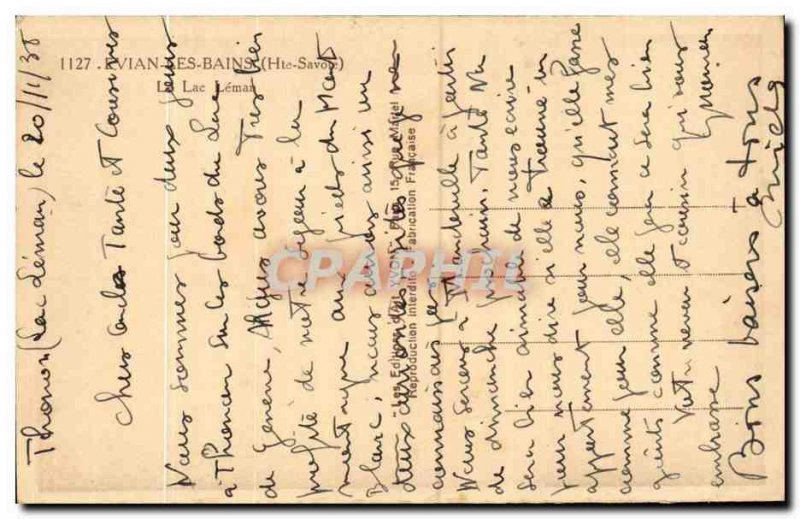 1127 - EVIAN-LES-BAINS (Hte-Savoie)
Le Lac Léman
Les Editions d'Art YVON, 15, Rue Martel
Reproduction interdite Fabrication Française
CPAPHIL
Thonon (Lac Léman) le 20/1/38
Chers Tante et Cousines
Nous sommes pour deux jours
à Thonon sur les bords du Lac
de Genève, Nous avons très bien
profité de notre séjour à la
montagne aux pieds du Mont
Blanc, nous aurons ainsi un
deux
connaissais pas
Nous serons à à partir
de dimanche prochain. Tante
sera bien aimable de nous écrire
pour nous dire si elle a trouvé un
appartement pour nous, qu'elle fasse
comme pour elle, elle connait mes
goûts comme elle fera ce sera bien
Votre neveu et cousin qui vous
embrasse
Bons baisers à tous